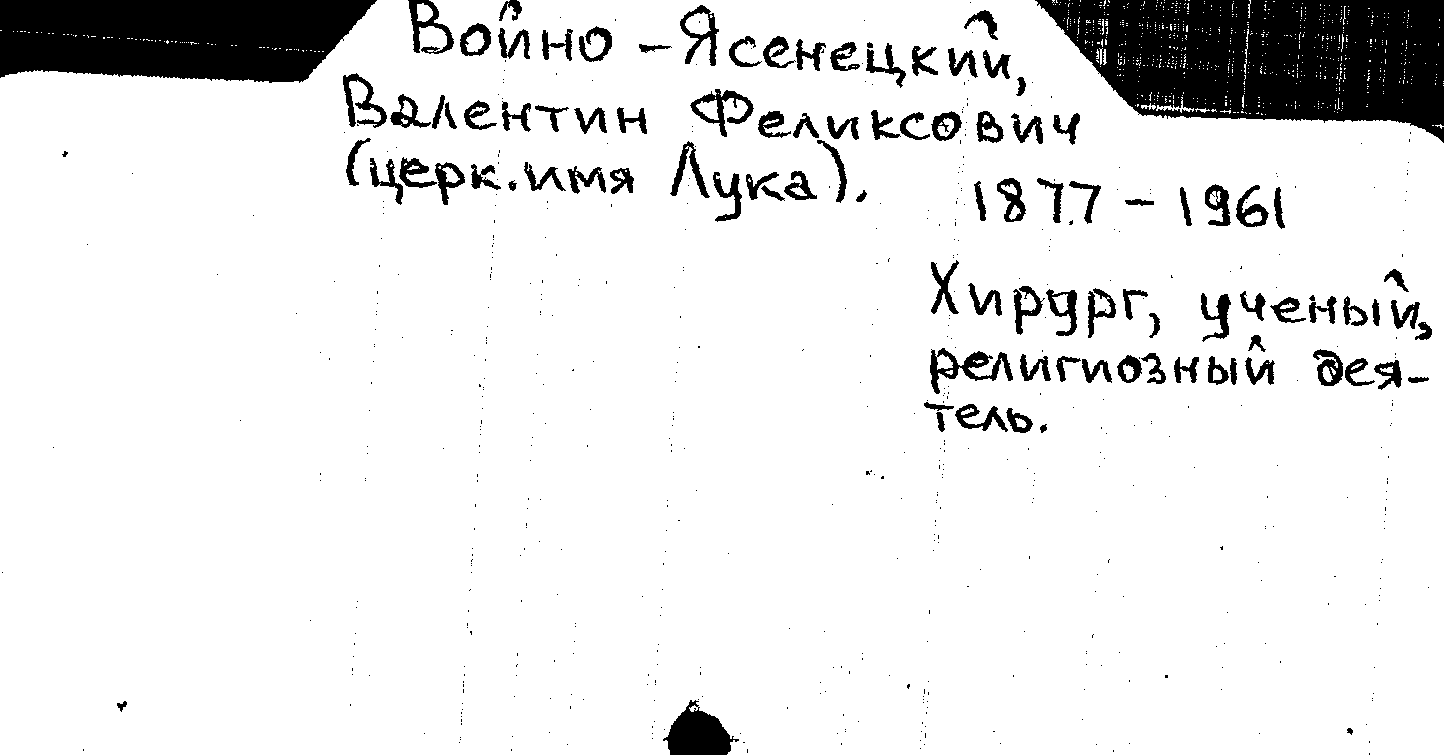 Войно - Ясенецкий,
Валентин Феликсович
(церк. имя Лука).
1877 - 1961
Хирург, ученый,
религиозный дея-
тель.